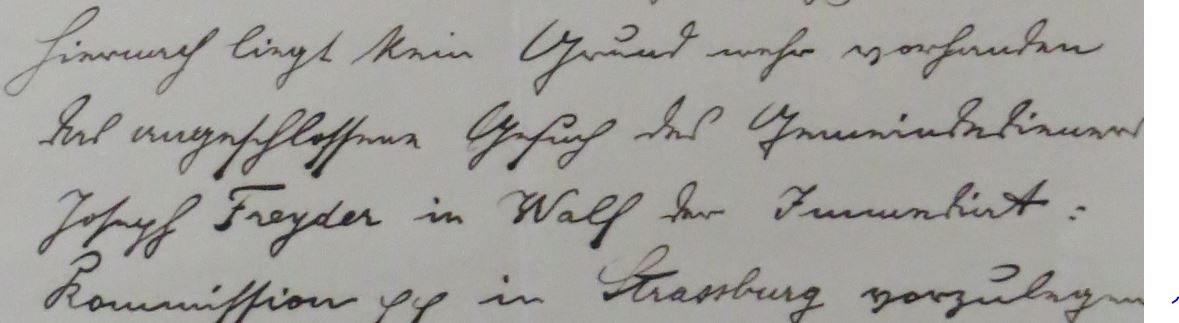 Hiernach liegt kein Grund mehr vorhanden
das angeschlossene Gesuch des Gemeindedieners
Joseph Freyder in Walf der Immediat-
Kommission pp in Strassburg vorzulegen